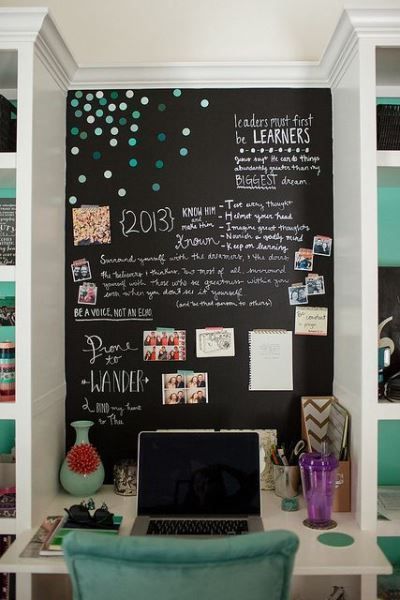 leaders must first
be LEARNERS
Jesus says He can do things
abundantly greater than my
BIGGEST dream.
{2013}
KNOW HIM
and
make Him
Known
- Test every thought
- Helmet your head
- Imagine great thoughts
- Nourish a godly mind
- Keep on learning
Surround yourself with the dreamers & the doers
the believers & thinkers. But most of all, surround
yourself with those who see greatness within you
even when you don't see it yourself.
(and be that person to others)
BE A VOICE, NOT AN ECHO.
Be constant
in prayer
Prone
to
WANDER
BIND my heart
to Thee